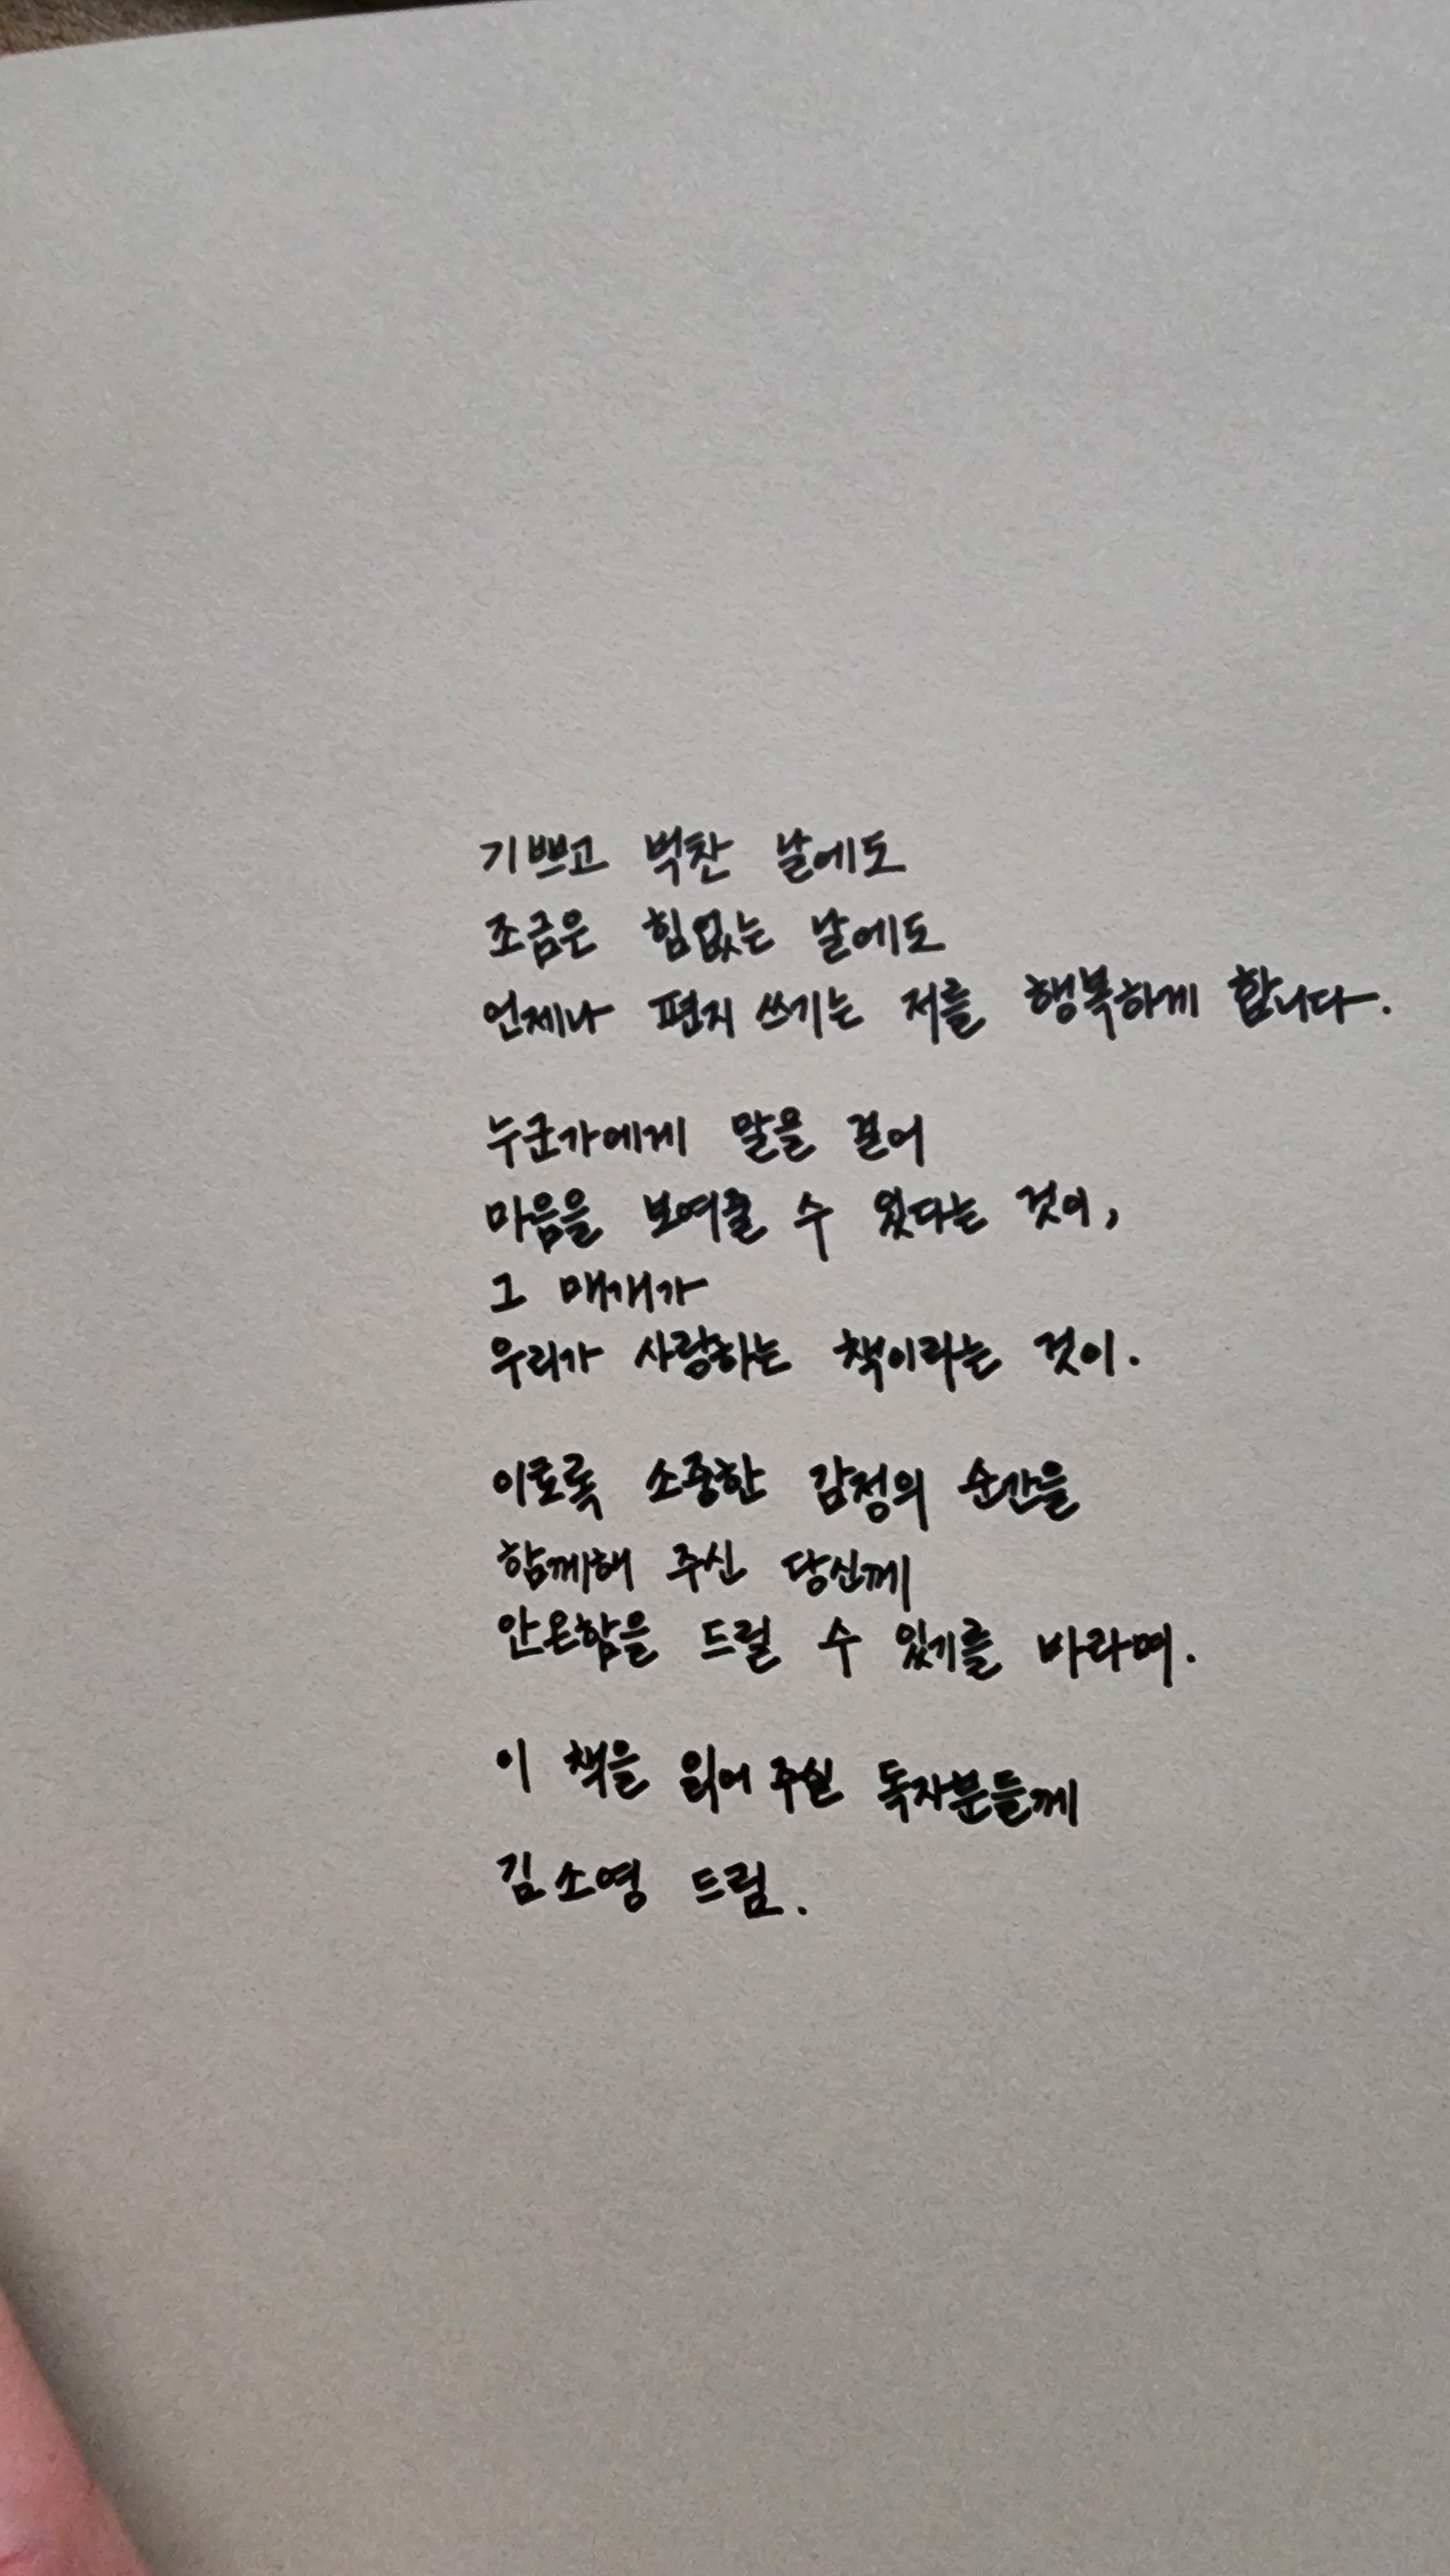 기쁘고 벅찬 날에도
조금은 힘없는 날에도
언제나 편지 쓰기는 저를 행복하게 합니다.
누군가에게 말을 걸어
마음을 보여줄 수 있다는 것이,
그 매개가
우리가 사랑하는 책이라는 것이.
이토록 소중한 감정의 순간을
함께해 주신 당신께
안온함을 드릴 수 있기를 바라며.
이 책을 읽어 주실 독자분들께
김소영 드림.